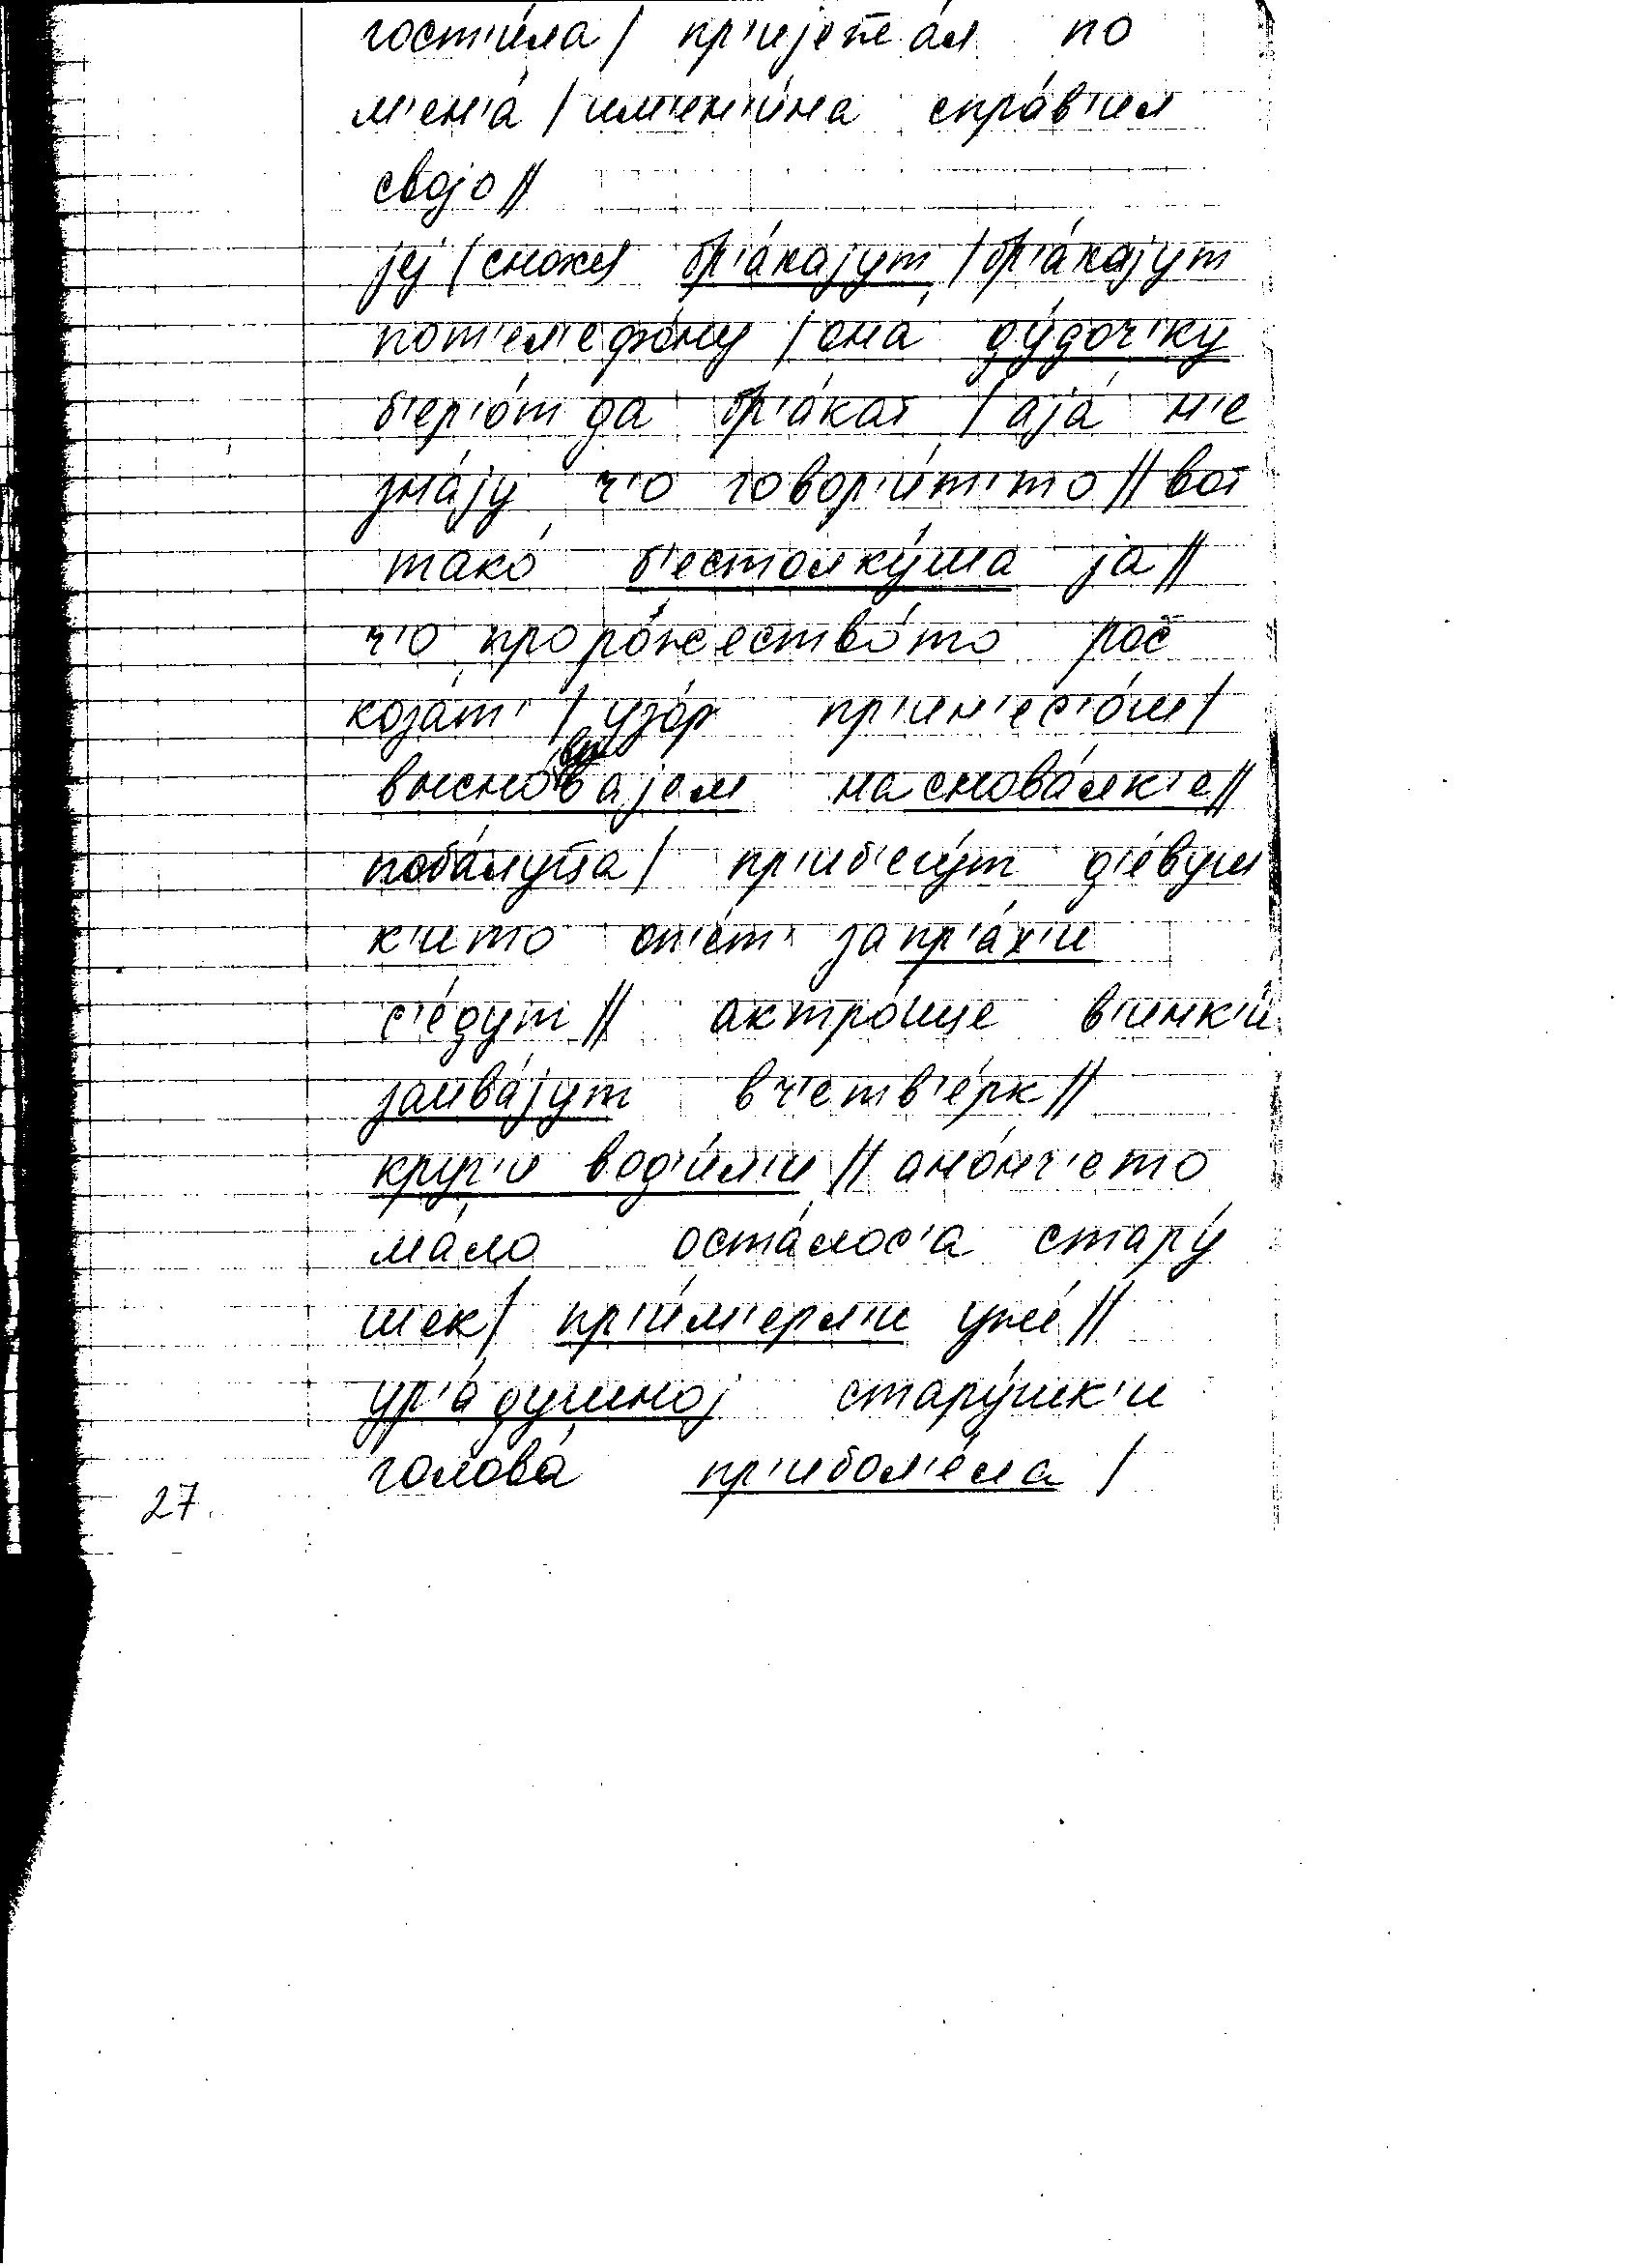 гост'и́ла / пр'ијеће́л по
м'ен'а́ / им'ен'и́на спра́в'ил
својо //
јеј / сноже́ бр'а́кајут / бр'а́кајут
пот'ел'ефо́ну / она́ ду́доч'ку
б'ер'о́т да бр'а́кат / аја́ н'е
зна́ју ч'о говор'и́т'то // вот
тако́ б'естолку́ша ја //
ч'о проро́жество́то рос
коза́т' / узо́р пр'ин'ес'о́ш /
висно́вајем на снова́лк'е //
поба́луца / пр'иб'егу́т д'е́вуш
к'ито оп'е́т' за пр'а́х'и
с'е́дут // актро́ице в'инк'и́
зацва́јут в ч'етв'е́рк //
круг'и́ вод'и́л'и // ано́нч'ето
ма́ло оста́лос'а стару́
шек / пр'и́м'ерл'и уже́ //
ур'а́душној стару́шк'и
голова́ пр'ибол'е́ла /
27.